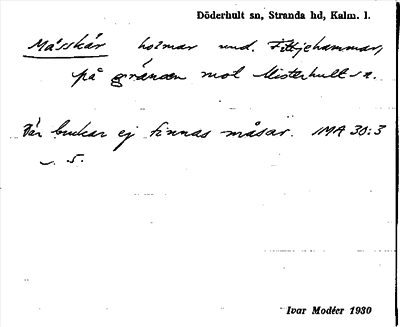 Döderhult sn, Stranda hd, Kalm. l.
Måsskär holmar und. Fittjehammar,
på gränsen mot Misterhult sn.
Där brukar ej finnas måsar. IMA 30:3
s. 5.
Ivar Modéer 1930